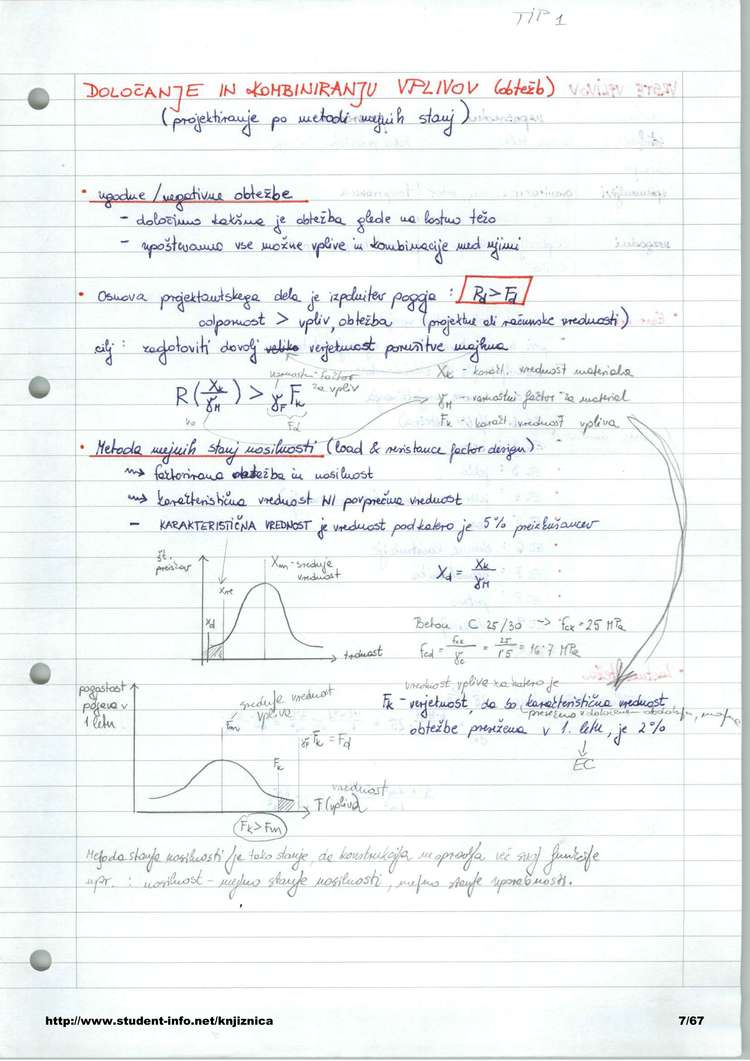 TIP 1
DOLOČANJE IN KOMBINIRANJU VPLIVOV (obtežb)
(projektiranje po metodi mejnih stanj)
• ugodne / negativne obtežbe
- določimo kakšna je obtežba glede na lastno težo
- upoštevamo vse možne vplive in kombinacije med njimi
• Osnova projektantskega dela je izpolnitev pogoja : Rd > Fd
odpornost > vpliv, obtežba (projektne ali računske vrednosti)
cilj : zagotoviti dovolj verjetnost porušitve majhna
varnostni faktor za vpliv
Xk - karakt. vrednost materiala
R (Xk/γM) > γF Fk
Fd
γM - varnostni faktor za material
Fk - karakt. vrednost vpliva
• Metoda mejnih stanj nosilnosti (load & resistance factor design)
⇝ faktorirana obtežba in nosilnost
⇝ karakteristična vrednost NI povprečna vrednost
- KARAKTERISTIČNA VREDNOST je vrednost pod katero je 5% preizkušancev
št. preiskav
Xm - srednja vrednost
Xd
trdnost
Xd = Xk/γM
Beton C 25/30 → fck = 25 MPa
fcd = fck/γc = 25/1.5 = 16.7 MPa
pogostost pojava v 1 letu
srednja vrednost vpliva
Fm
γF Fk = Fd
Fk
vrednost
F (vpliva)
Fk > Fm
vrednost vpliva za katero je
Fk - verjetnost, da bo karakteristična vrednost
obtežbe presežena v 1. letu, je 2%
↓
EC
Metoda stanja nosilnosti je tako stanje, da konstrukcija ne opravlja več svoj funkcije
npr. : nosilnost - mejno stanje nosilnosti, mejno stanje uporabnosti.
http://www.student-info.net/knjiznica
7/67